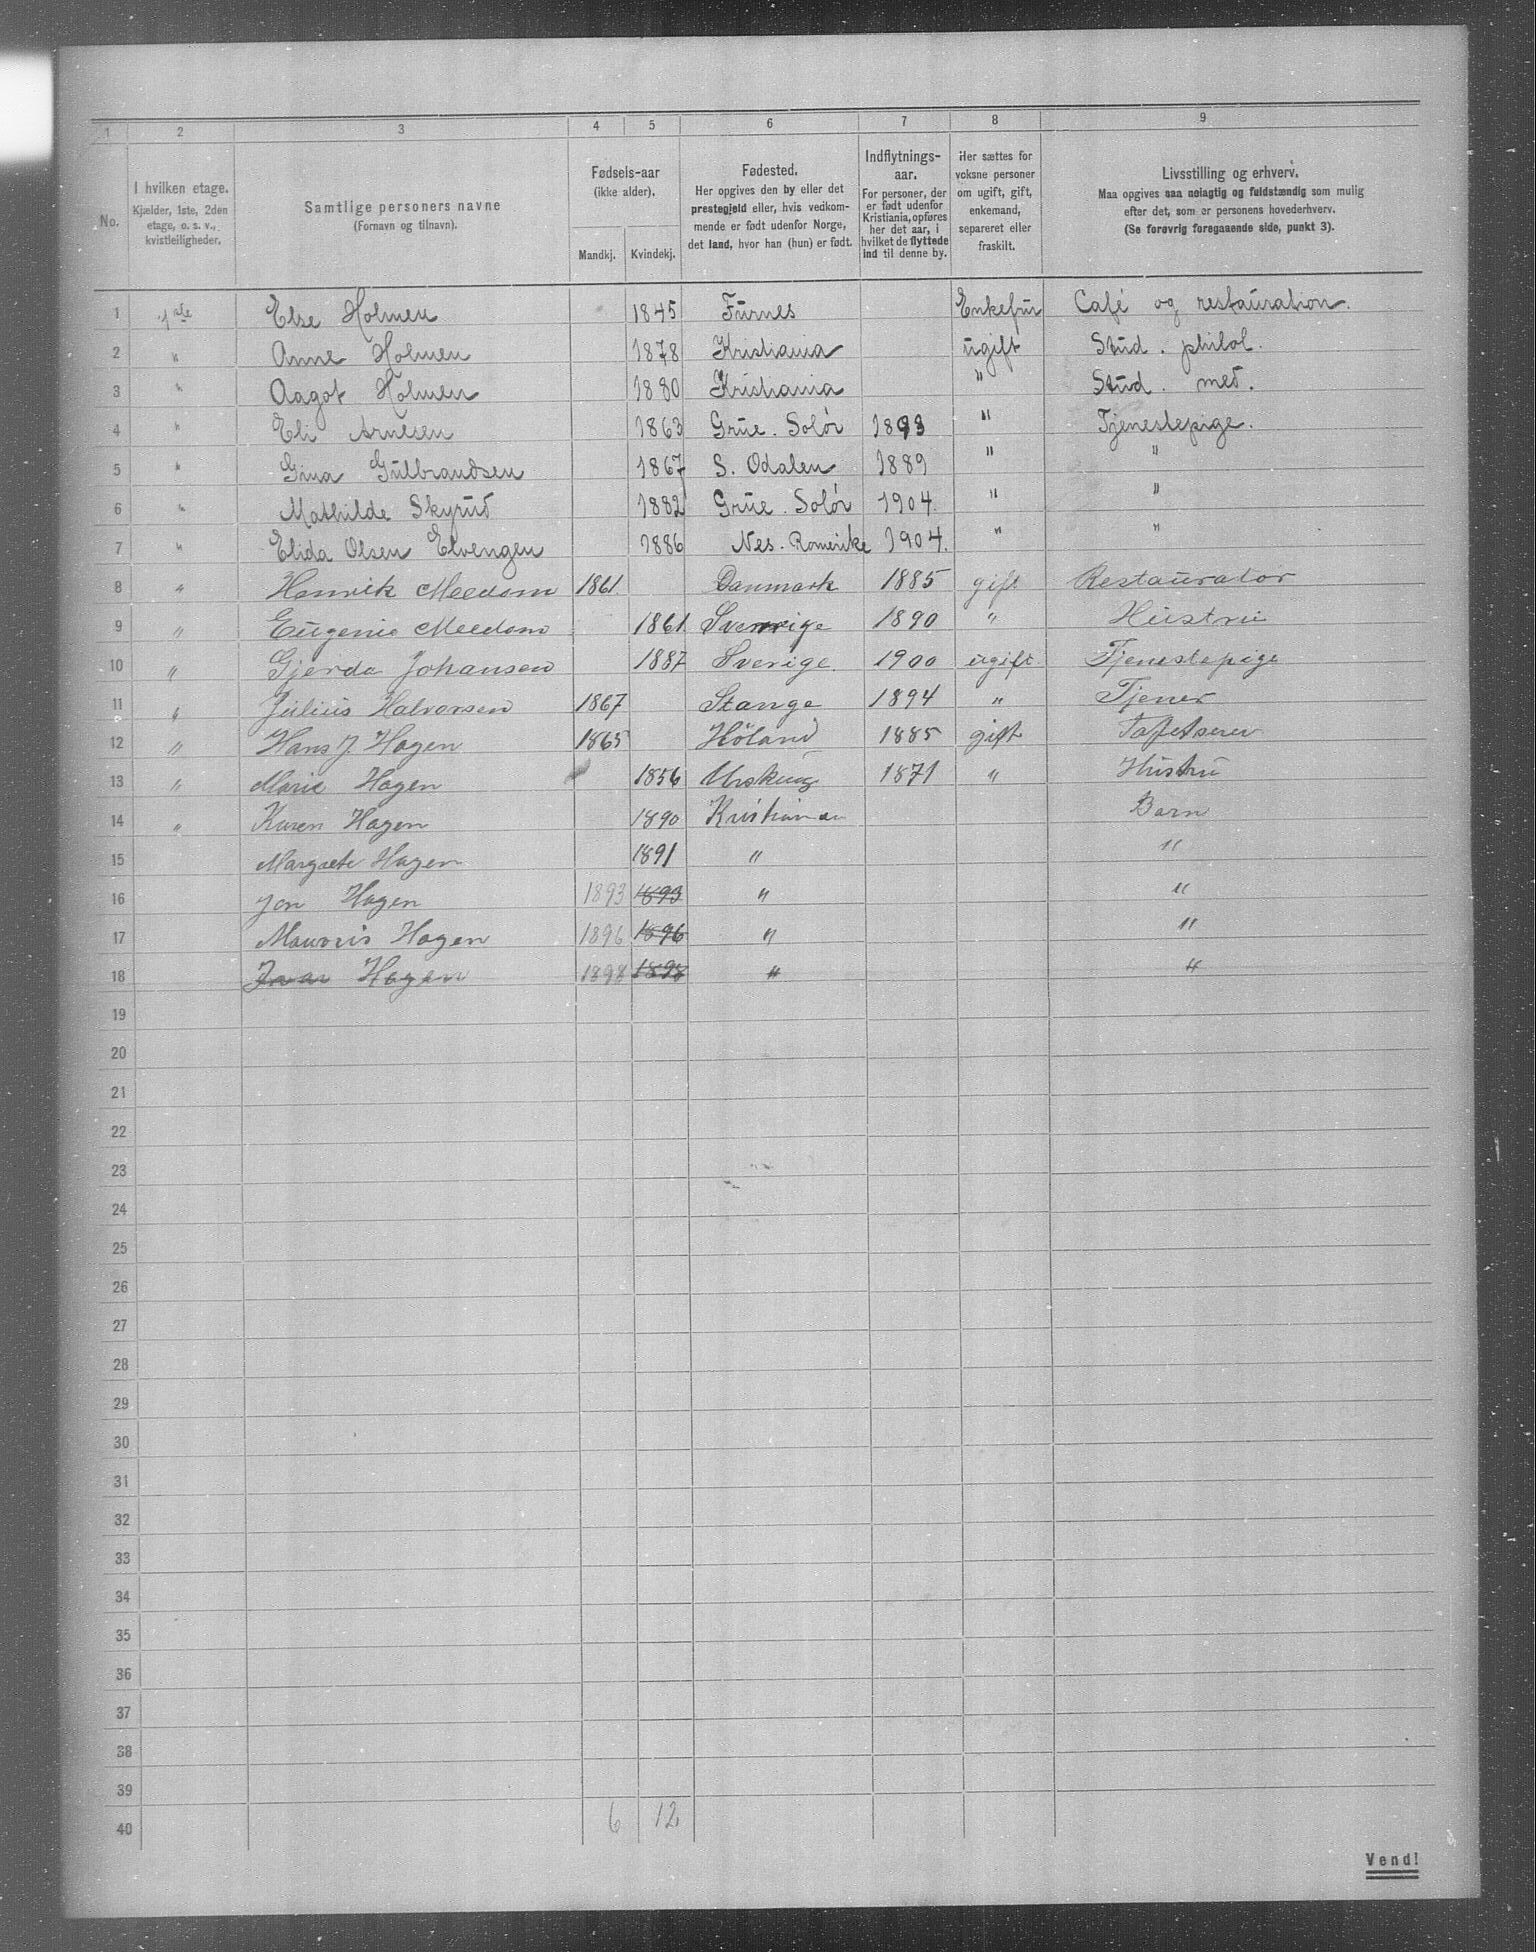 1 2 3 4 5 6 7 8 9
No. I hvilken etage. Kjælder, 1ste, 2den etage, o. s. v., kvistleiligheder. Samtlige personers navne (Fornavn og tilnavn). Fødsels-aar (ikke alder). Mandkj. Kvindekj. Fødested. Her opgives den by eller det prestegjeld eller, hvis vedkommende er født udenfor Norge, det land, hvor han (hun) er født. Indflytnings-aar. For personer, der er født udenfor Kristiania, opføres her det aar, i hvilket de flyttede ind til denne by. Her sættes for voksne personer om ugift, gift, enkemand, separeret eller fraskilt. Livsstilling og erhverv. Maa opgives saa nøiagtig og fuldstændig som mulig efter det, som er personens hovederhverv. (Se forøvrig foregaaende side, punkt 3).
1 1ste Else Holmen 1845 Furnes Enkefru Café og restauration.
2 " Anne Holmen 1878 Kristiania ugift Stud. philol.
3 " Aagot Holmen 1880 Kristiania " Stud. med.
4 " Eli Arnesen 1863 Grue. Solør 1893 " Tjenestepige.
5 " Gina Gulbrandsen 1867 S. Odalen 1889 " "
6 " Mathilde Skyrud 1882 Grue. Solør 1904. " "
7 " Elida Olsen Elvengen 1886 Nes. Romerike 1904. " "
8 " Henrik Meedom 1861. Danmark 1885 gift Restauratør
9 " Eugenie Meedom 1861 Sverrige 1890 " Hustru
10 " Gjerda Johansen 1887 Sverige. 1900 ugift Tjenestepige
11 " Julius Halvorsen 1867 Stange 1894 " Tjener
12 " Hans J. Hagen 1865 Høland 1885 gift Tapetserer
13 " Marie Hagen 1856 Urskoug 1871 " Hustru
14 " Karen Hagen 1890 Kristiania Barn
15 Margrete Hagen 1891 " "
16 Jon Hagen 1893 1893 " "
17 Mauvris Hagen 1896 1896 " "
18 Ivar Hagen 1898 1898 " "
19
20
21
22
23
24
25
26
27
28
29
30
31
32
33
34
35
36
37
38
39
40 6 12
Vend!